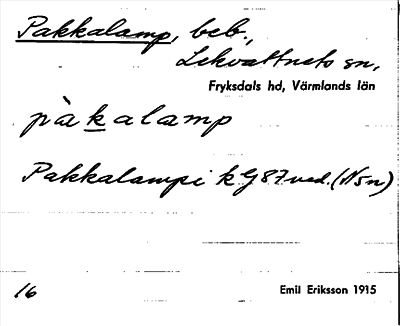 Pakkalamp, beb.,
Lekvattnets sn,
Fryksdals hd, Värmlands län
pàkalamp
Pakkalampi k G87 ved. (N sn)
16
Emil Eriksson 1915